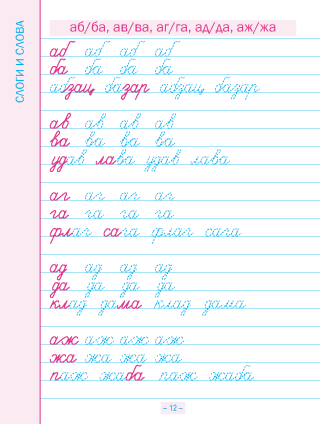 СЛОГИ И СЛОВА
аб/ба, ав/ва, аг/га, ад/да, аж/жа
аб аб аб аб
ба ба ба ба
абзац базар абзац базар
ав ав ав ав
ва ва ва ва
удав лава удав лава
аг аг аг аг
га га га га
флаг сага флаг сага
ад ад ад ад
да да да да
клад дама клад дама
аж аж аж аж
жа жа жа жа
паж жаба паж жаба
– 12 –